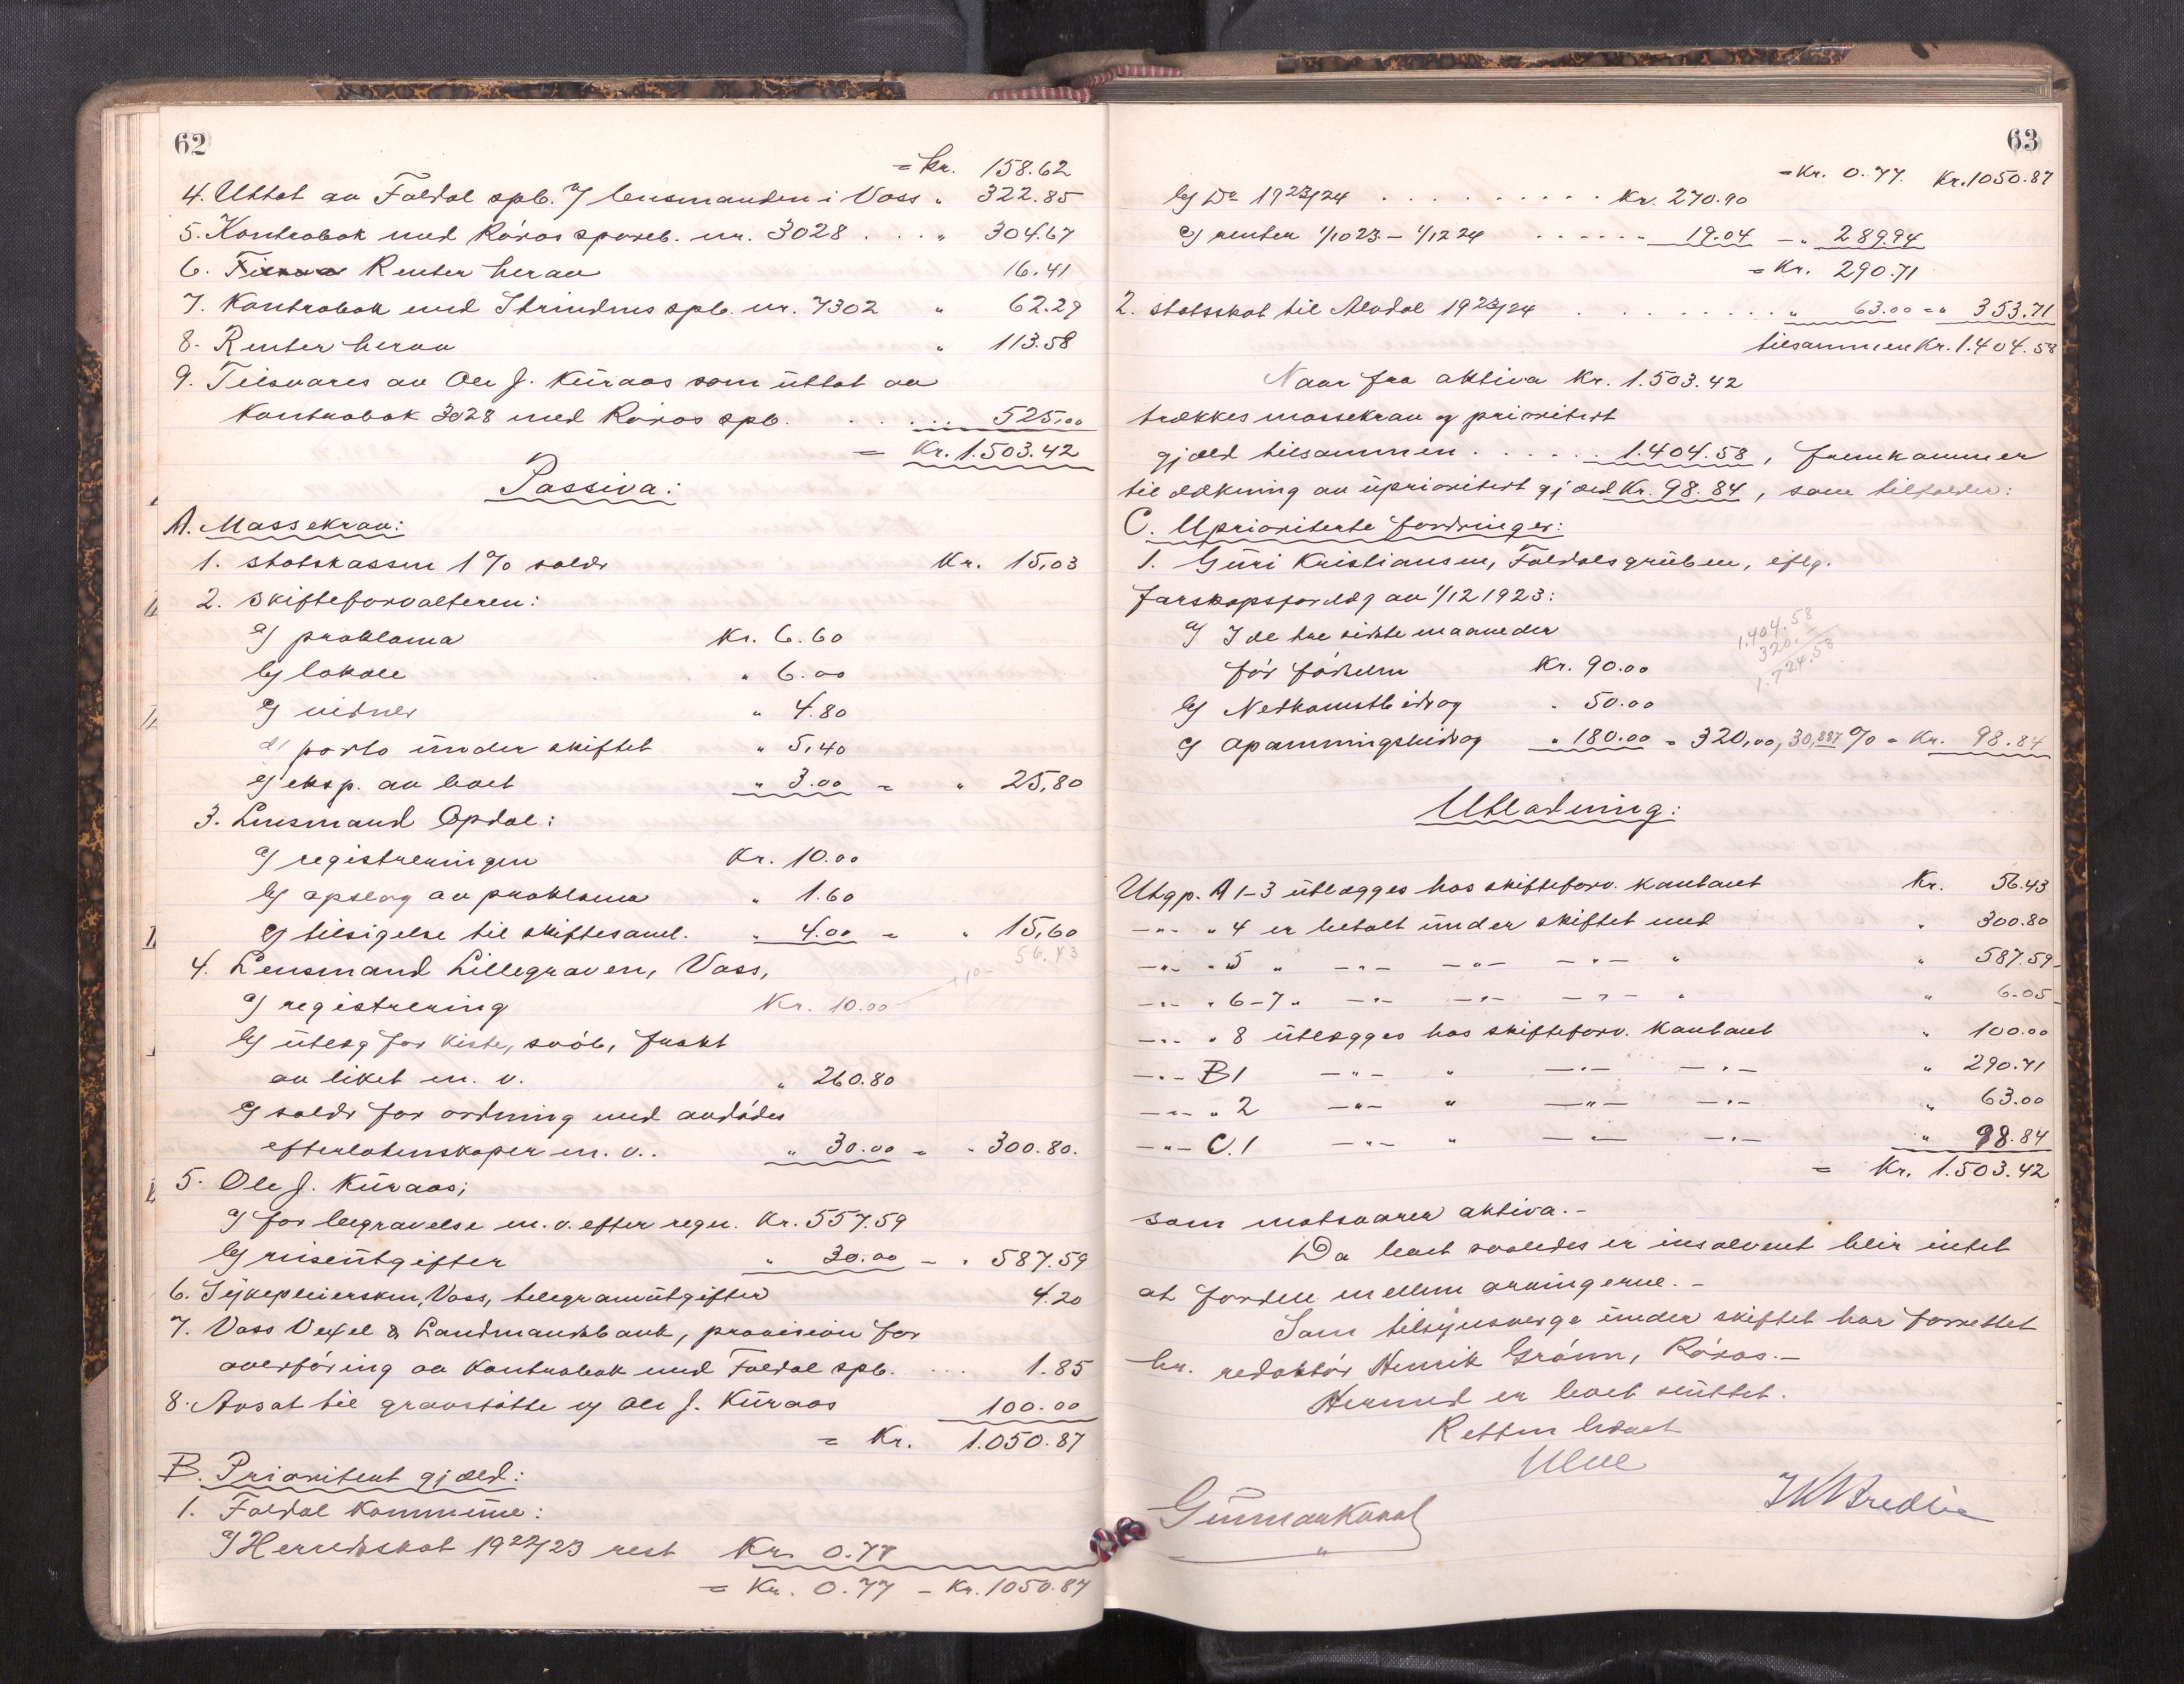 62
= Kr. 158.62
4. Uttat av Foldal spb. v/ lensmanden i Voss " 322.85
5. Kontrabok med Røros spareb. nr. 3028 . . . " 304.67
6. Renter herav 16.41
7. Kontrabok med Strindens spb. nr. 7302 " 62.29
8. Renter herav " 113.58
9. Tilsvares av Ole J. Kuraas som uttat av
kontrabok 3028 med Røros spb. . . . . 525,00
= Kr. 1.503.42
Passiva:
A. Massekrav:
1. Statskassen 1% salær Kr. 15,03
2. Skifteforvalteren:
a) proklama Kr. 6.60
b) lokale " 6.00
c) vidner " 4.80
d) porto under skiftet " 5,40
e) eksp. av boet " 3.00 = " 25,80
3. Lensmand Opdal:
a) registreringen Kr. 10.00
b) opslag av proklama " 1.60
c) tilsigelse til skiftesaml. " 4.00 = " 15,60
56.43
4. Lensmand Lillegraven, Voss,
a) registrering Kr. 10.00
b) utlæg for kiste, svøb, frakt
av liket m. v. " 260.80
c) salær for ordning med avdødes
efterlatenskaper m. v. " 30.00 = " 300.80.
5. Ole J. Kuraas;
a) for begravelse m. v. efter regn. Kr. 557.59
b) reiseutgifter " 30.00 - " 587.59
6. Sykepleiersken, Voss, telegramutgifter 4.20
7. Voss Vexel & Landmandsbank, provision for
overføring av kontrabok med Foldal spb. . . . 1.85
8. Avsat til gravstøtte v/ Ole J. Kuraas 100.00
= Kr. 1.050.87
B. Prioritert gjæld:
1. Foldal kommune:
a) Herredsskat 1922/23 rest Kr. 0.77
= Kr. 0.77 - Kr. 1050.87
63
= Kr. 0.77. Kr. 1050.87
b) Do 1923/24 . . . . . . . . . Kr. 270.90
c) renter 1/10 23 - 1/12 24 . . . . . . 19.04 - " 289.94
= Kr. 290.71
2. Statsskat til Alvdal 1923/24 . . . . . . . . . " 63.00 = " 353.71
tilsammen Kr. 1.404.58
Naar fra aktiva Kr. 1.503.42
trækkes massekrav og prioritert
gjæld tilsammen . . . . . 1.404.58, fremkommer
til dækning av uprioritert gjæld Kr. 98.84, som tilfalder:
C. Uprioriterte fordringer:
1. Guri Kristiansen, Foldalsgruben, iflg.
farskapsforelæg av 1/12 1923:
a) I de tre sidste maaneder
før fødselen Kr. 90.00
1.404.58
320.
1.724.58
b) Nedkomstbidrag " 50.00
c) Opammingsbidrag " 180.00 = 320,00, 30,887 % = Kr. 98.84
Utlodning:
Utgp. A 1-3 utlægges hos skifteforv. kontant Kr. 56.43
-"- " 4 er betalt under skiftet med " 300.80
-"- " 5 " -"- -"- -"- " " 587.59
-"- " 6-7 " -"- -"- -"- " " 6.05
-"- " 8 utlægges hos skifteforv. kontant " 100.00
-"- B 1 -"- " -"- -"- " 290.71
-"- " 2 -"- " -"- -"- " 63.00
-"- C. 1 -"- " -"- -"- " 98.84
= Kr. 1.503.42
som motsvarer aktiva.-
Da boet saaledes er insolvent blir intet
at fordele mellem arvingerne.-
Som tilsynsverge under skiftet har forrettet
hr. redaktør Henrik Grønn, Røros.-
Hermed er boet sluttet.
Retten hævet